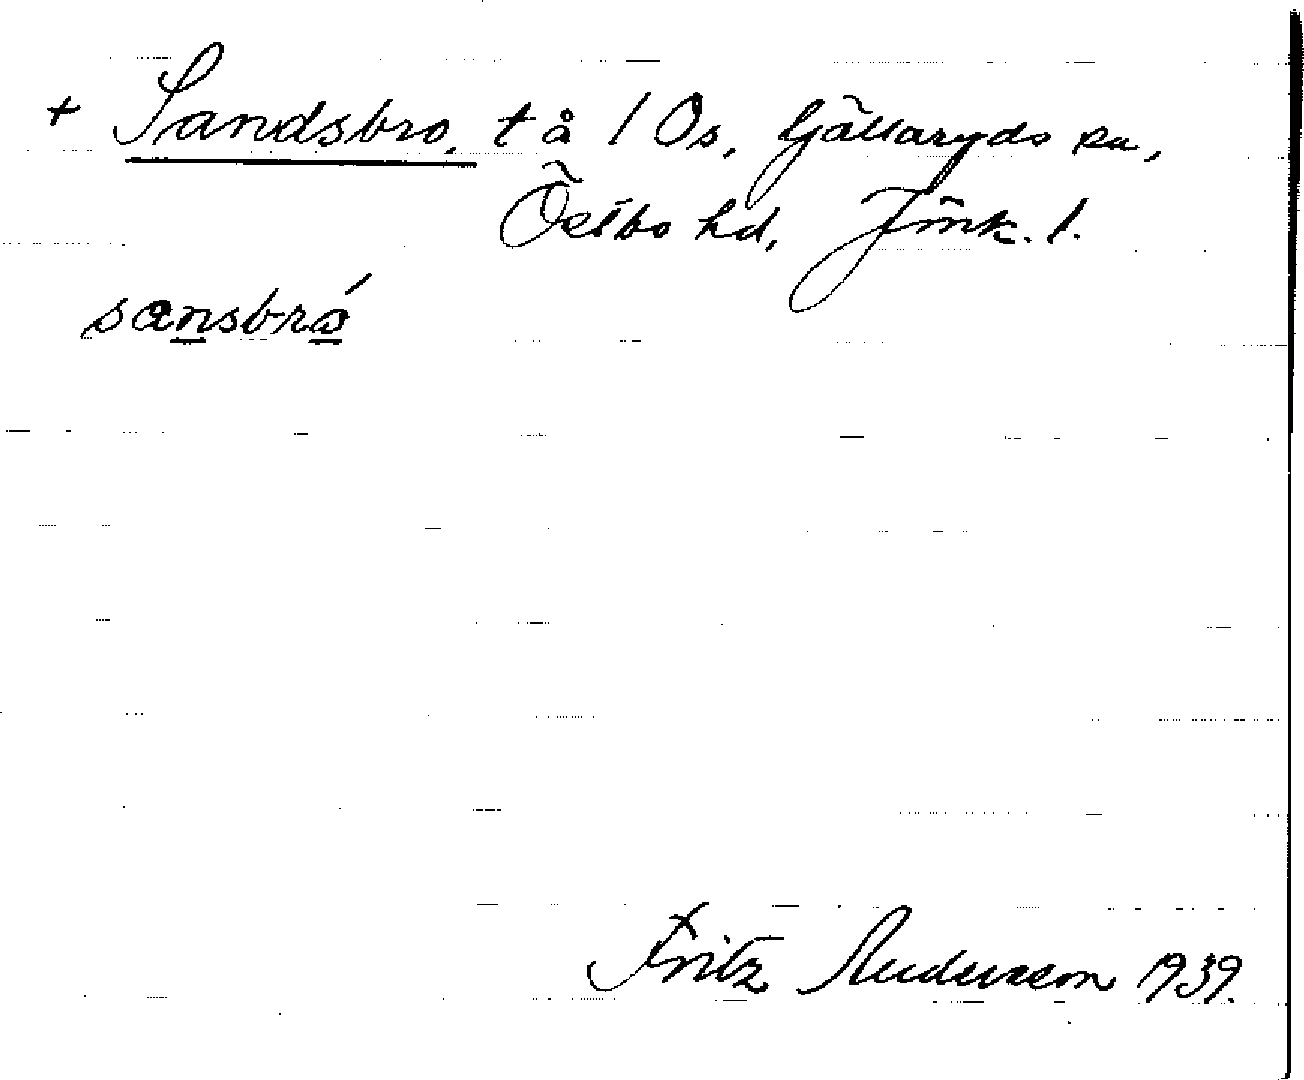 + Sandsbro, t å / Os, Gällaryds sn,
Östbo hd, Jönk. l.
sansbró
Fritz Andersson 1939.